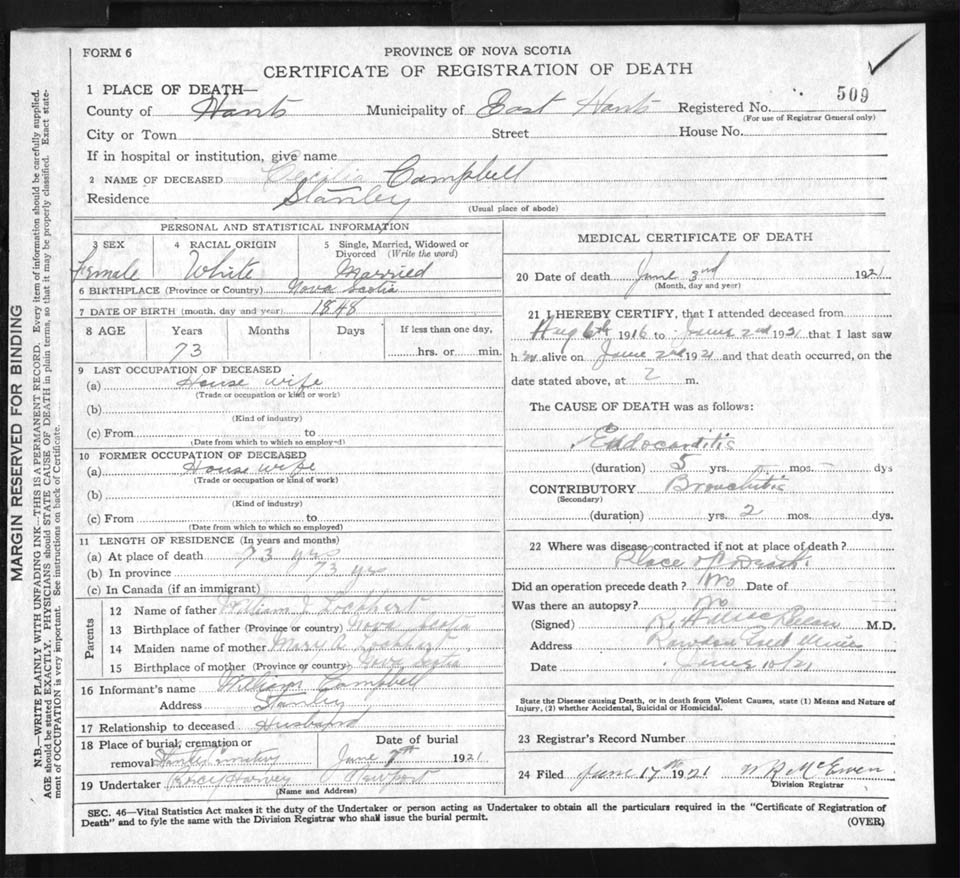 FORM 6
PROVINCE OF NOVA SCOTIA
CERTIFICATE OF REGISTRATION OF DEATH
1 PLACE OF DEATH—
County of Hants Municipality of East Hants Registered No. 509
(For use of Registrar General only)
City or Town Street House No.
If in hospital or institution, give name
2 NAME OF DECEASED Campbell
Residence Stanley
(Usual place of abode)
PERSONAL AND STATISTICAL INFORMATION
3 SEX 4 RACIAL ORIGIN 5 Single, Married, Widowed or Divorced (Write the word)
Female White Married
6 BIRTHPLACE (Province or Country) Nova Scotia
7 DATE OF BIRTH (month, day and year) 1848
8 AGE Years Months Days If less than one day,
73 hrs. or min.
9 LAST OCCUPATION OF DECEASED
(a) House wife
(Trade or occupation or kind or work)
(b)
(Kind of industry)
(c) From to
(Date from which to which so employed)
10 FORMER OCCUPATION OF DECEASED
(a) House wife
(Trade or occupation or kind of work)
(b)
(Kind of industry)
(c) From to
(Date from which to which so employed)
11 LENGTH OF RESIDENCE (In years and months)
(a) At place of death 73 yrs
(b) In province 73 yrs
(c) In Canada (if an immigrant)
Parents
12 Name of father William J. Lockhart
13 Birthplace of father (Province or country) Nova Scotia
14 Maiden name of mother Mary A. Lockhart
15 Birthplace of mother (Province or country) Nova Scotia
16 Informant's name William Campbell
Address Stanley
17 Relationship to deceased Husband
18 Place of burial, cremation or removal Date of burial
June 7th 1921
19 Undertaker Percy Harvey Newport
(Name and Address)
MEDICAL CERTIFICATE OF DEATH
20 Date of death June 3rd 1921
(Month, day and year)
21 I HEREBY CERTIFY, that I attended deceased from
Aug 6th 1916 to June 2nd 1921 that I last saw
h alive on June 2nd 1921 and that death occurred, on the
date stated above, at 2 m.
The CAUSE OF DEATH was as follows:
Endocarditis
(duration) 5 yrs. mos. – dys
CONTRIBUTORY Bronchitis
(Secondary)
(duration) yrs. 2 mos. dys.
22 Where was disease contracted if not at place of death?
Place of Death.
Did an operation precede death? No Date of
Was there an autopsy? No
(Signed) M.D.
Address Rawdon Gold Mines
Date June 10/21
State the Disease causing Death, or in death from Violent Causes, state (1) Means and Nature of
Injury, (2) whether Accidental, Suicidal or Homicidal.
23 Registrar's Record Number
24 Filed June 17th 1921 McEwen
Division Registrar
SEC. 46—Vital Statistics Act makes it the duty of the Undertaker or person acting as Undertaker to obtain all the particulars required in the "Certificate of Registration of
Death" and to fyle the same with the Division Registrar who shall issue the burial permit.
(OVER)
MARGIN RESERVED FOR BINDING
N.B.—WRITE PLAINLY WITH UNFADING INK—THIS IS A PERMANENT RECORD. Every item of information should be carefully supplied.
AGE should be stated EXACTLY. PHYSICIANS should STATE CAUSE OF DEATH in plain terms, so that it may be properly classified. Exact state-
ment of OCCUPATION is very important. See instructions on back of Certificate.